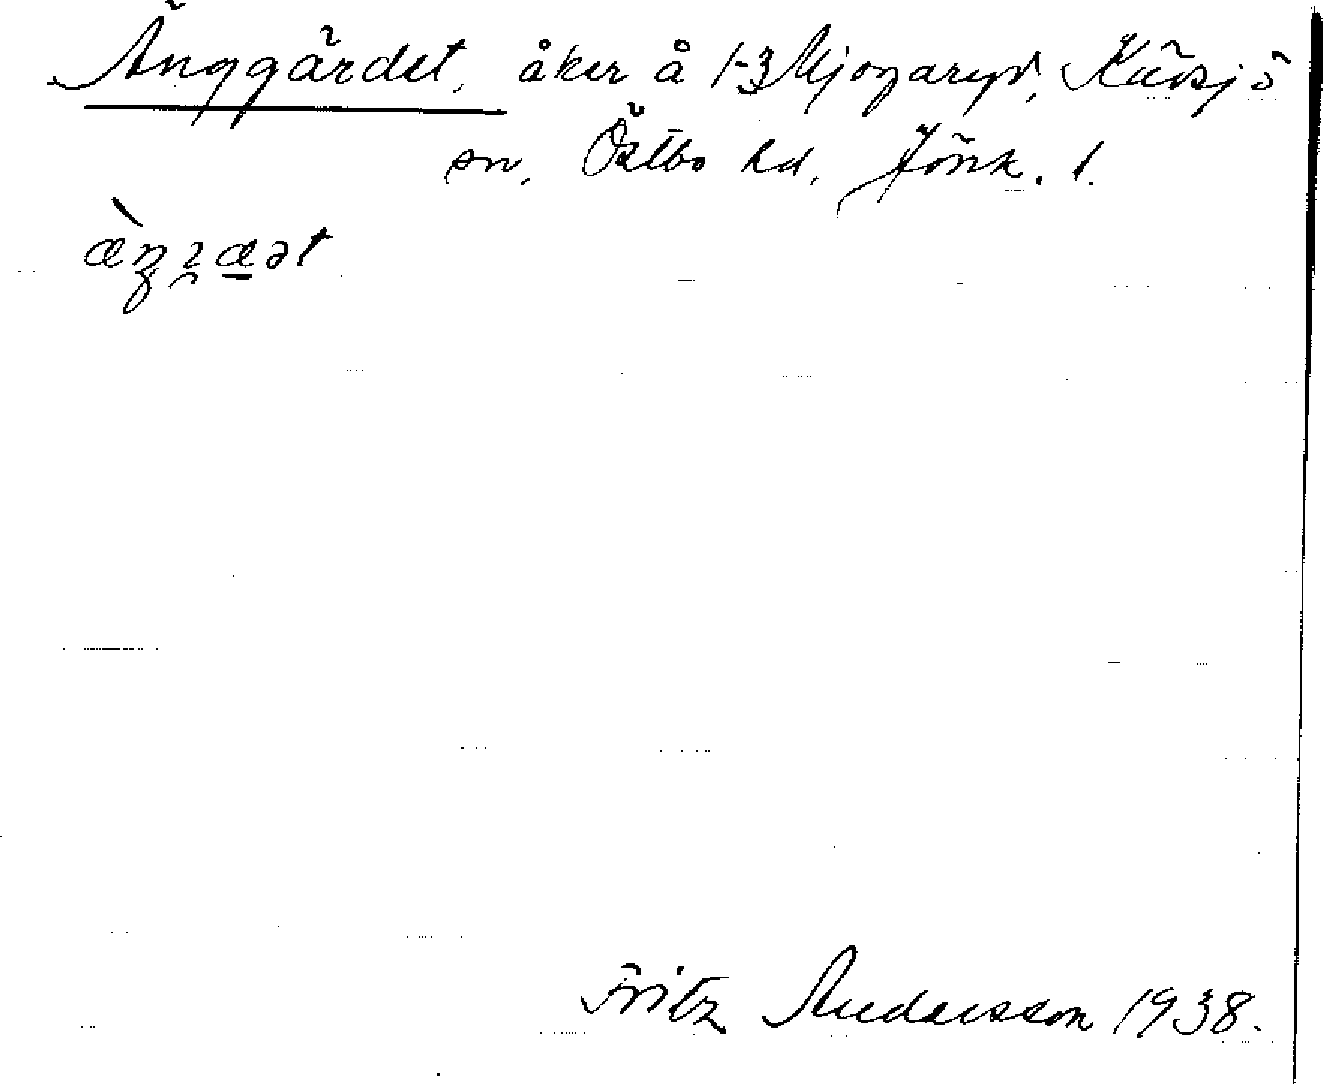 Änggärdet, åker å 1-3 Mjogaryd, Kävsjö
sn, Östbo hd, Jönk. l.
Fritz Andersson 1938.